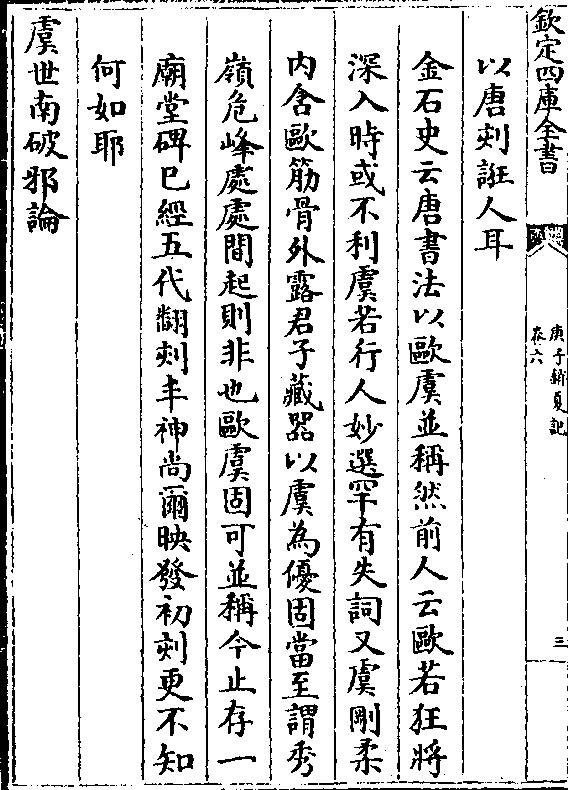 欽定四庫全書
庚子銷夏記
卷六
三
以唐刻誑人耳
金石史云唐書法以歐虞並稱然前人云歐若狂將
深入時或不利虞若行人妙選罕有失詞又虞剛柔
内含歐筋骨外露君子藏器以虞為優固當至謂秀
嶺危峰處處間起則非也歐虞固可並稱今止存一
廟堂碑已經五代翻刻丰神尚爾映發初刻更不知
何如耶
虞世南破邪論